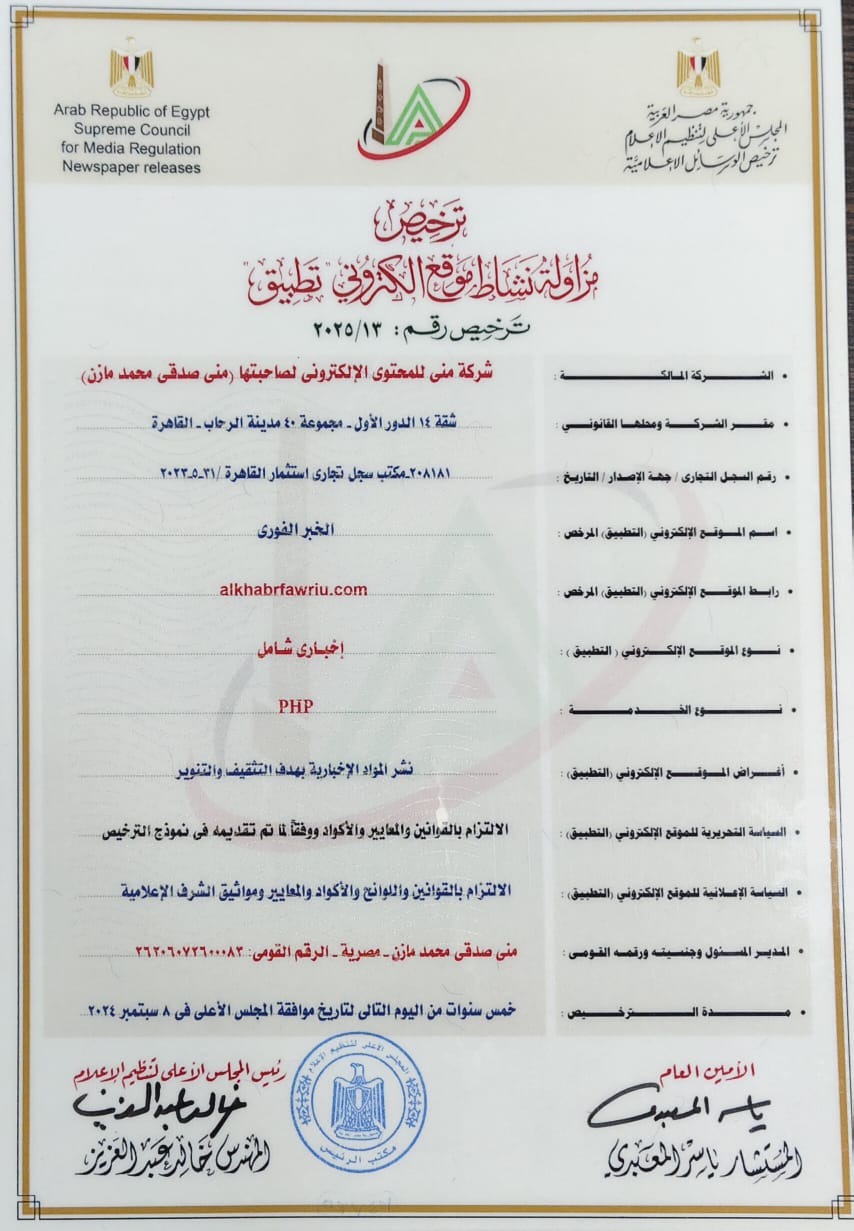 Arab Republic of Egypt
Supreme Council
for Media Regulation
Newspaper releases
جمهورية مصر العربية
المجلس الأعلى لتنظيم الإعلام
ترخيص الوسائل الإعلامية
ترخيص
مزاولة نشاط موقع الكتروني "تطبيق"
ترخيص رقم: ٢٠٢٥/١٣
• الشركة المالكة : شركة منى للمحتوى الإلكترونى لصاحبتها (منى صدقى محمد مازن)
• مقر الشركة ومحلها القانوني : شقة ١٤ الدور الأول - مجموعة ٤٠ مدينة الرحاب - القاهرة
• رقم السجل التجارى / جهة الإصدار / التاريخ : ٢٠٨١٨١-مكتب سجل تجارى استثمار القاهرة /٣١-٥-٢٠٢٣
• اسم الموقع الإلكتروني (التطبيق) المرخص : الخبر الفورى
• رابط الموقع الإلكتروني (التطبيق) المرخص : alkhabrfawriu.com
• نوع الموقع الإلكتروني ( التطبيق ) : إخبارى شامل
• نوع الخدمة : PHP
• أغراض الموقع الإلكتروني (التطبيق) : نشر المواد الإخبارية بهدف التثقيف والتنوير
• السياسة التحريرية للموقع الإلكتروني (التطبيق) : الالتزام بالقوانين والمعايير والأكواد ووفقاً لما تم تقديمه فى نموذج الترخيص
• السياسة الإعلانية للموقع الإلكتروني (التطبيق) : الالتزام بالقوانين واللوائح والأكواد والمعايير ومواثيق الشرف الإعلامية
• المدير المسئول وجنسيته ورقمه القومى : منى صدقى محمد مازن - مصرية - الرقم القومى: ٢٦٢٠٦٠٧٢٦٠٠٠٨٣
• مدة الترخيص : خمس سنوات من اليوم التالى لتاريخ موافقة المجلس الأعلى فى ٨ سبتمبر ٢٠٢٤
الأمين العام
ياسر المعبدى
المستشار ياسر المعبدي
المجلس الأعلى لتنظيم الإعلام
مكتب الرئيس
رئيس المجلس الأعلى لتنظيم الإعلام
خالد عبد العزيز
المهندس خالد عبد العزيز